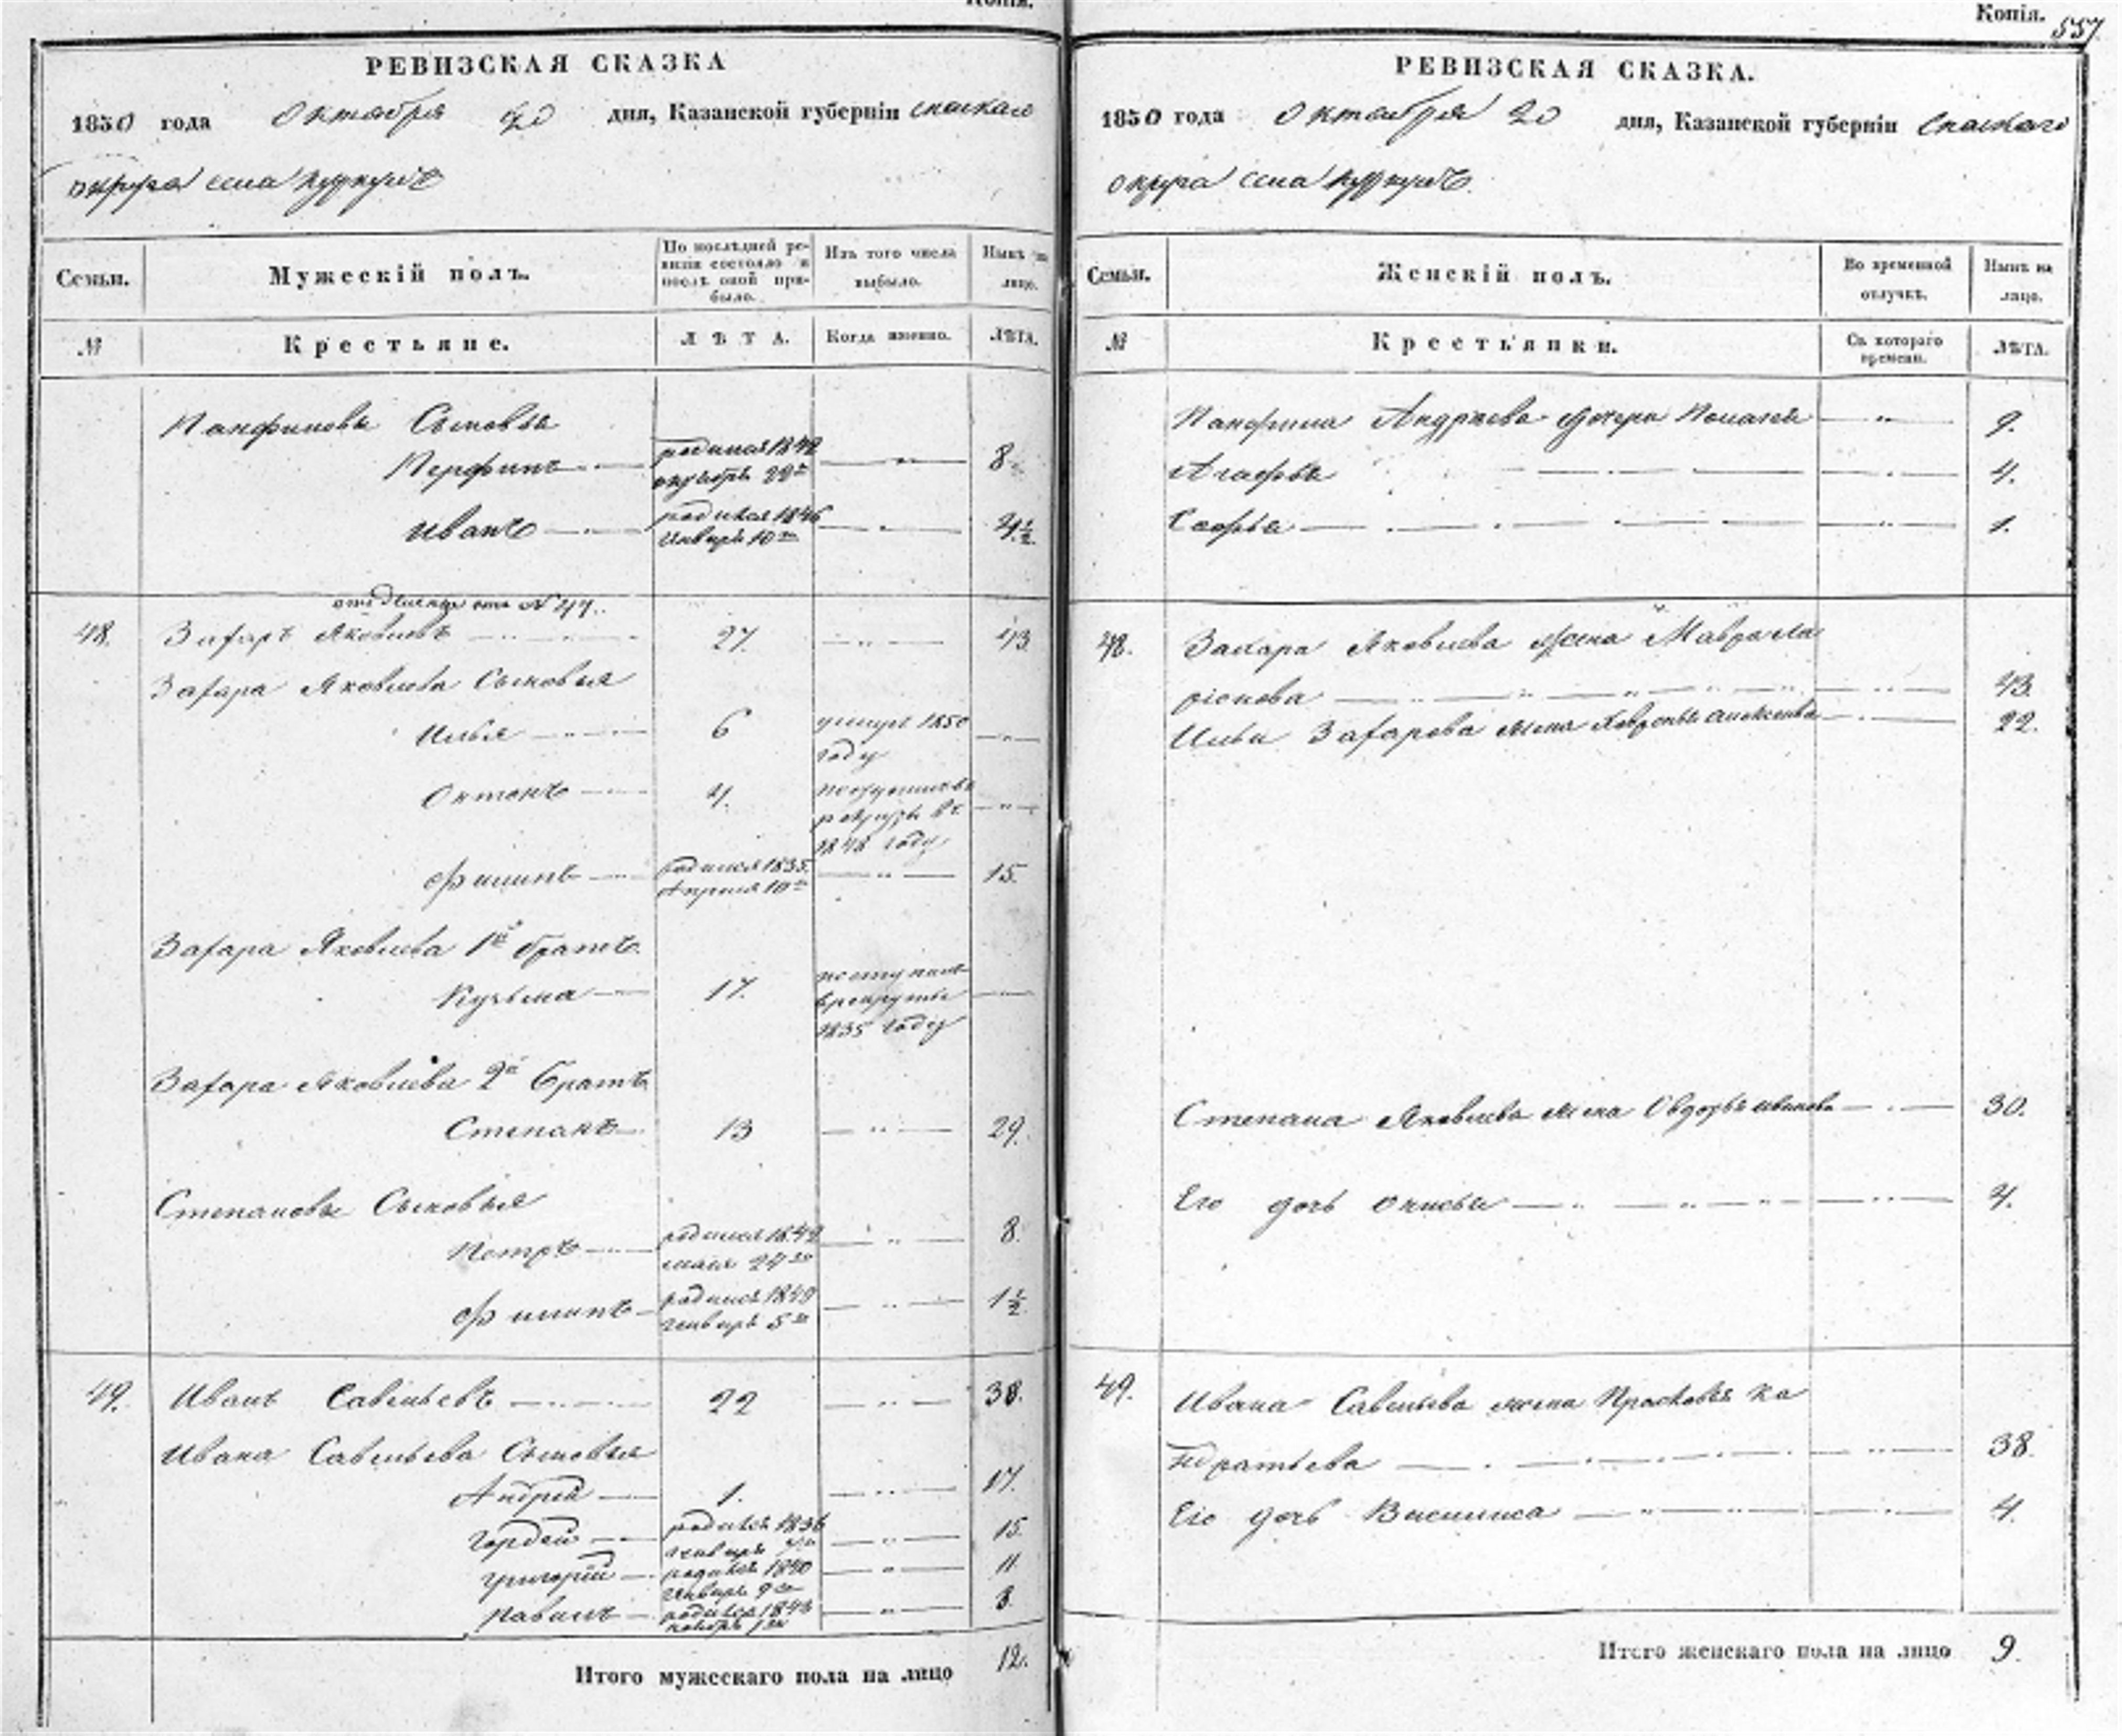 Копія.
РЕВИЗСКАЯ СКАЗКА
1850 года Октября 20 дня, Казанской губерніи Спаскаго
округа села
Семьи.
Мужескій полъ.
По послѣдней ревизіи состояло и послѣ оной прибыло.
Изъ того числа выбыло.
Нынѣ на лицо.
№
Крестьяне.
ЛѢТА.
Когда именно.
ЛѢТА.
Панфиловы Сыновья
Перфилъ — родился 1842 октябрь 22го — " — 8
Иванъ — родился 1846 Генваря 10го — " — 4½
отдѣлился отъ № 47.
48. Захаръ Яковлевъ — 27. — " — 43
Захара Яковлева Сыновья
Илья — 6 умеръ 1850 году — " —
4. въ 1848 году — " —
Филипъ — родился 1835. Апреля 10го — " — 15.
Захара Яковлева 1й братъ
Кузьма — 17. 1835 году —
Захара Яковлева 2й братъ
Степанъ — 13 — " — 29.
Степановы Сыновья
Петръ — родился 1842 маія — " — 8.
Филипъ — родился 1849 Генваря 5го — " — 1½
49. Иванъ Савельевъ — 22 — " — 38.
Ивана Савельева Сыновья
Андрей — 1. — " — 17.
Гордей — родился 1836 Генваря — " — 15
Григорій — родился 1840 Генваря 9го — " — 11
Павилъ — родился 1843 ноябрь 1го — " — 8
Итого мужескаго пола на лицо 12.
Копія. 557
РЕВИЗСКАЯ СКАЗКА.
1850 года Октября 20 дня, Казанской губерніи Спаскаго
округа села
Семьи.
Женскій полъ.
Во временной отлучкѣ.
Нынѣ на лицо.
№
Крестьянки.
Съ котораго времени.
ЛѢТА.
Панфила Андреева дочери — " — 9.
Агафья — " — 4.
Софья — " — 1.
48. Захара Яковлева жена Мавра Ла
ріонова — " — 43.
Ильи Захарова жена — " — 22.
Степана Яковлева жена — " — 30.
Его дочь — " — 4.
49. Ивана Савельева жена Прасковья Ка
ндратьева — " — 38.
Его дочь — " — 4.
Итого женскаго пола на лицо 9.